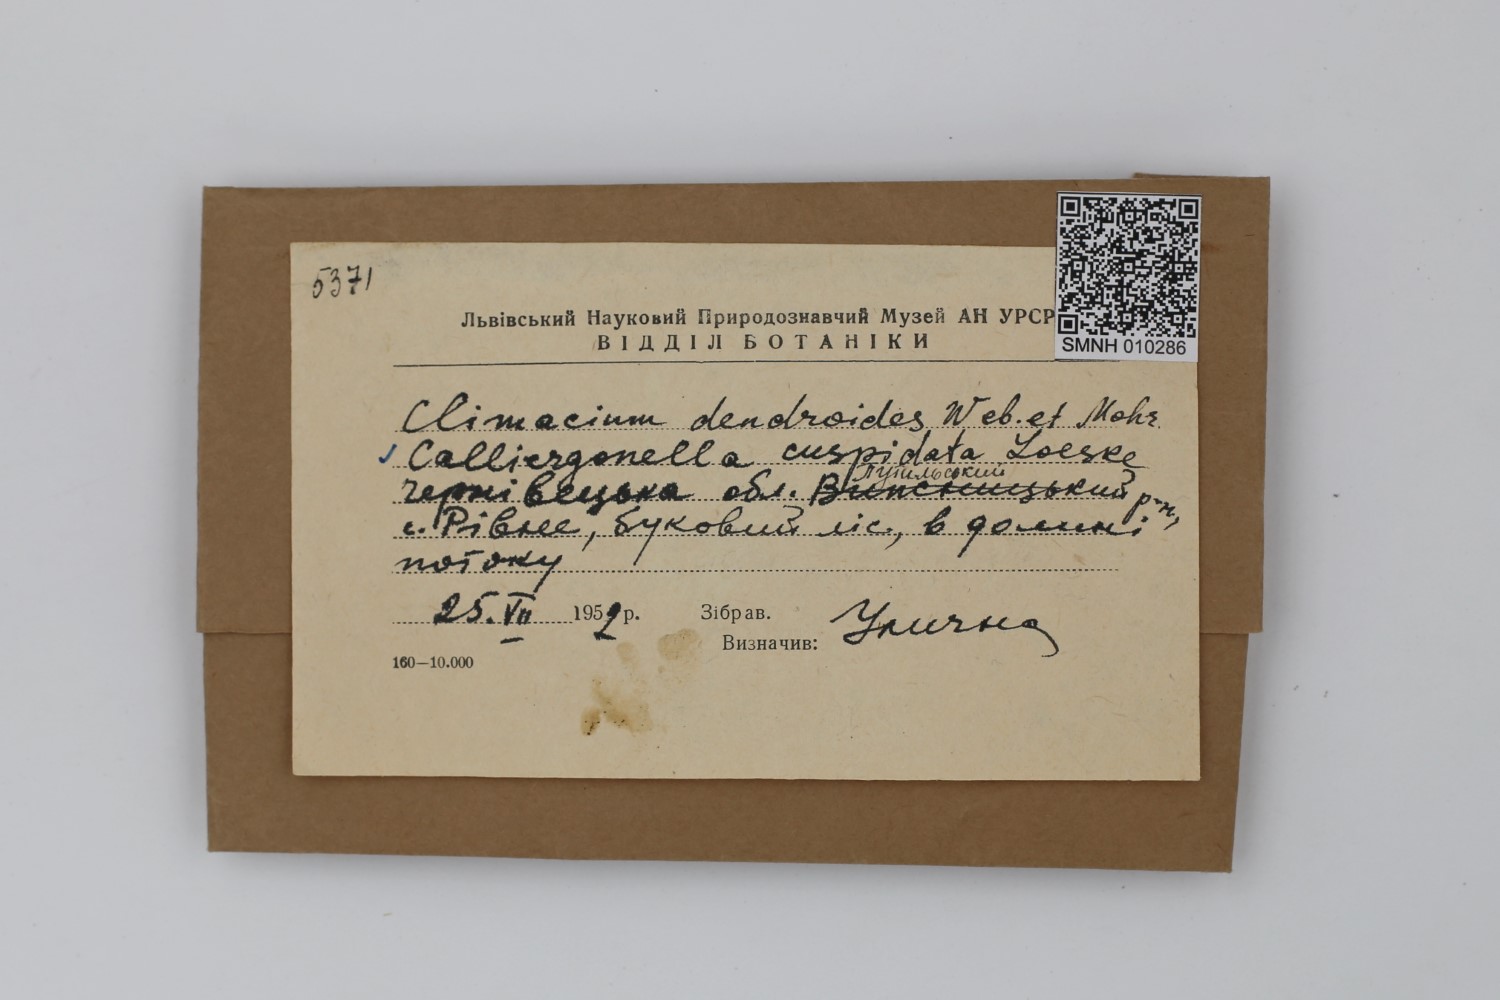 5371
Львівський Науковий Природознавчий Музей АН УРСР
ВІДДІЛ БОТАНІКИ
SMNH 010286
Climacium dendroides Web. et Mohr
Calliergonella cuspidata Loeske
Путильський
Чернівецька обл. Вижницький р-н,
с. Рівне, буковий ліс, в долині
потоку
25. VII 1952 р. Зібрав.
Визначив: Улична
160—10.000